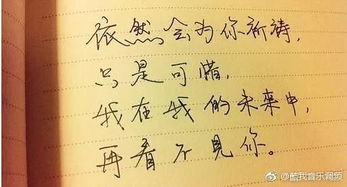 依然会为你祈祷，
只是可惜，
我在我的未来中，
再看不見你。
@酷我音乐调频